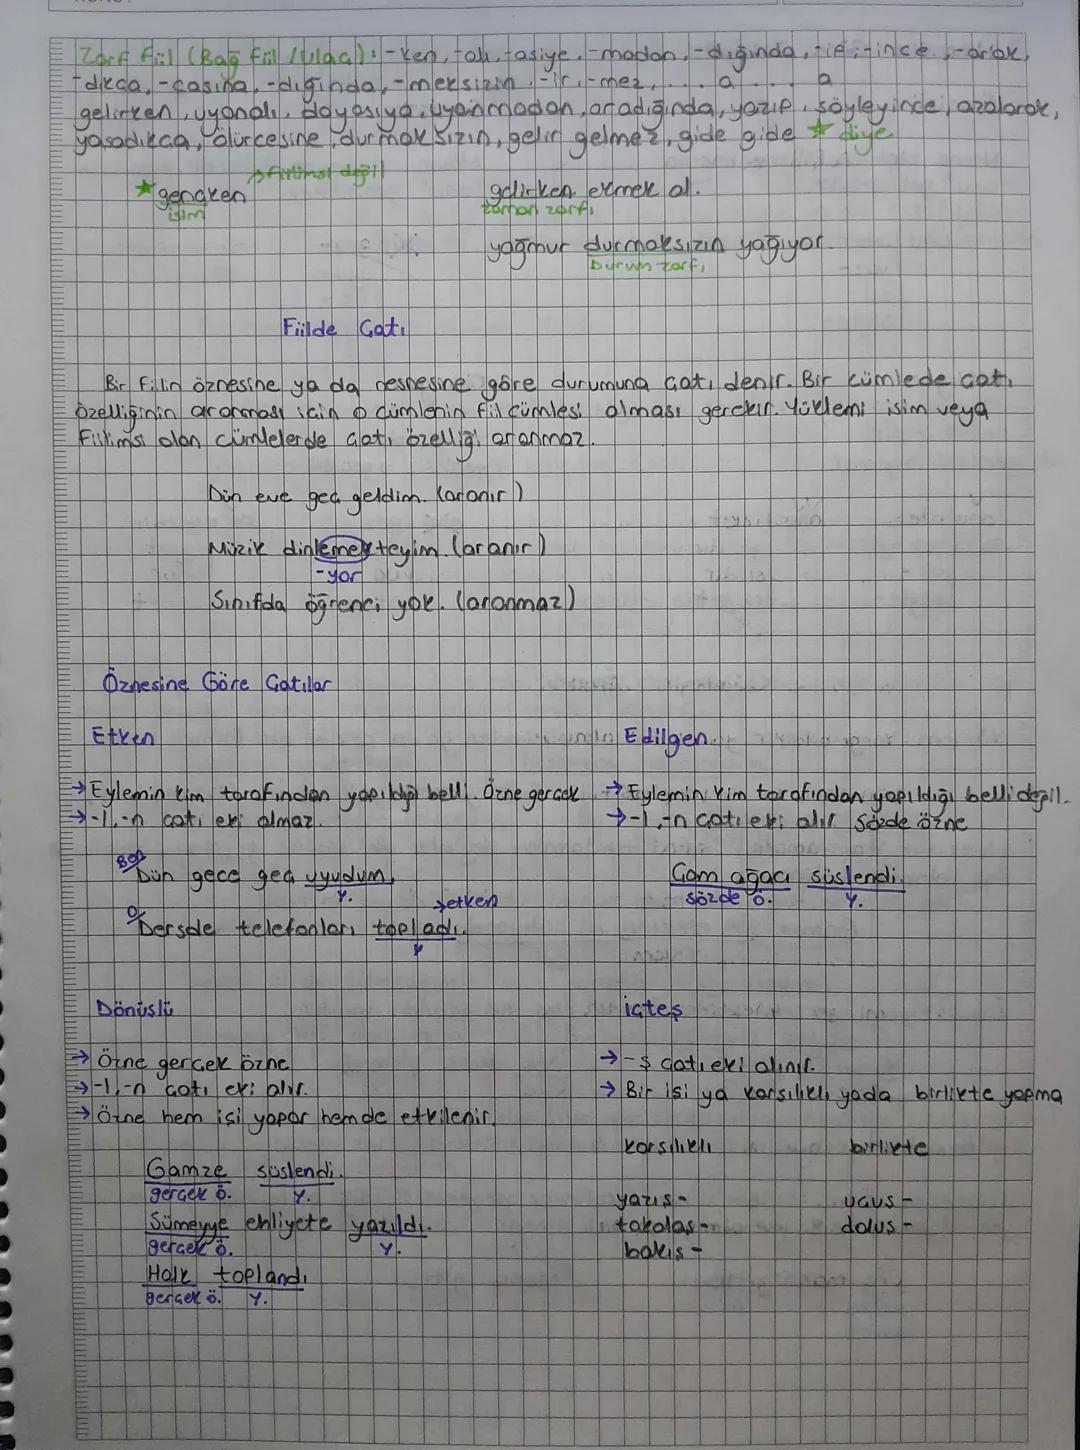 Zarf fiil (Bağ fiil / Ulaç): -ken, -alı, -asiye, -madan, -dığında, -ip, -ince, -arak,
-dıkça, -casına, -dığında, -meksizin, -ir, -mez, ... a .... a
gelirken, uyanalı, doyasıya, uyanmadan, aradığında, yazıp, söyleyince, azalarak,
yaşadıkça, ölürcesine, durmaksızın, gelir gelmez, gide gide ★ diye
→ fiilimsi değil
★ gençken
isim
gelirken ekmek al.
zaman zarfı
yağmur durmaksızın yağıyor.
Durum zarfı
Fiilde Çatı
Bir fiilin öznesine ya da nesnesine göre durumuna çatı denir. Bir cümlede çatı
özelliğinin aranması için o cümlenin fiil cümlesi olması gerekir. Yüklemi isim veya
fiilimsi olan cümlelerde çatı özelliği aranmaz.
Dün eve geç geldim. (aranır)
Müzik dinlemekteyim. (aranır)
-yor
Sınıfda öğrenci yok. (aranmaz)
Öznesine Göre Çatılar
Etken
→ Eylemin kim tarafından yapıldığı belli. Özne gerçek
→ -l, -n çatı eki almaz.
Ben
Dün gece geç uyudum.
Y.
→ etken
O
Derste telefonları topladı.
Y
Edilgen
→ Eylemin kim tarafından yapıldığı belli değil.
→ -l, -n çatı eki alır Sözde özne
Çam ağacı süslendi.
sözde ö. Y.
Dönüşlü
→ Özne gerçek özne
→ -l, -n çatı eki alır.
→ Özne hem işi yapar hemde etkilenir.
Gamze süslendi.
gerçek ö. Y.
Sümeyye ehliyete yazıldı.
gerçek ö. Y.
Halk toplandı
gerçek ö. Y.
işteş
→ -ş çatı eki alınır.
→ Bir işi ya karşılıklı yada birlikte yapma
karşılıklı birlikte
yazış- uçuş-
tokalaş- doluş-
bakış-